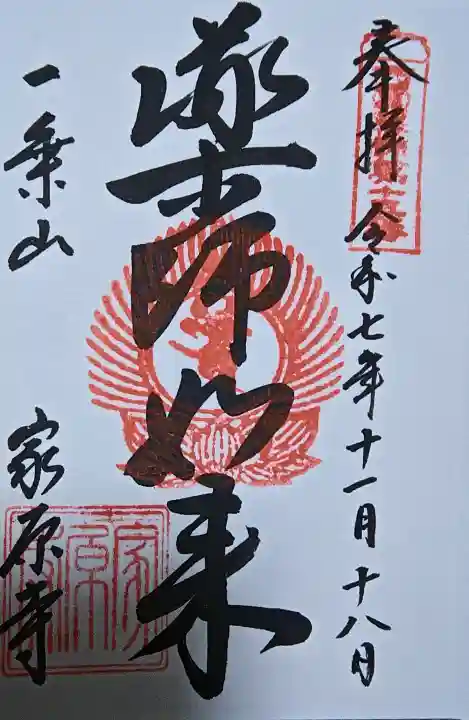 奉拝 令和七年十一月十八日
薬師如来
一乗山 家原寺
家原寺